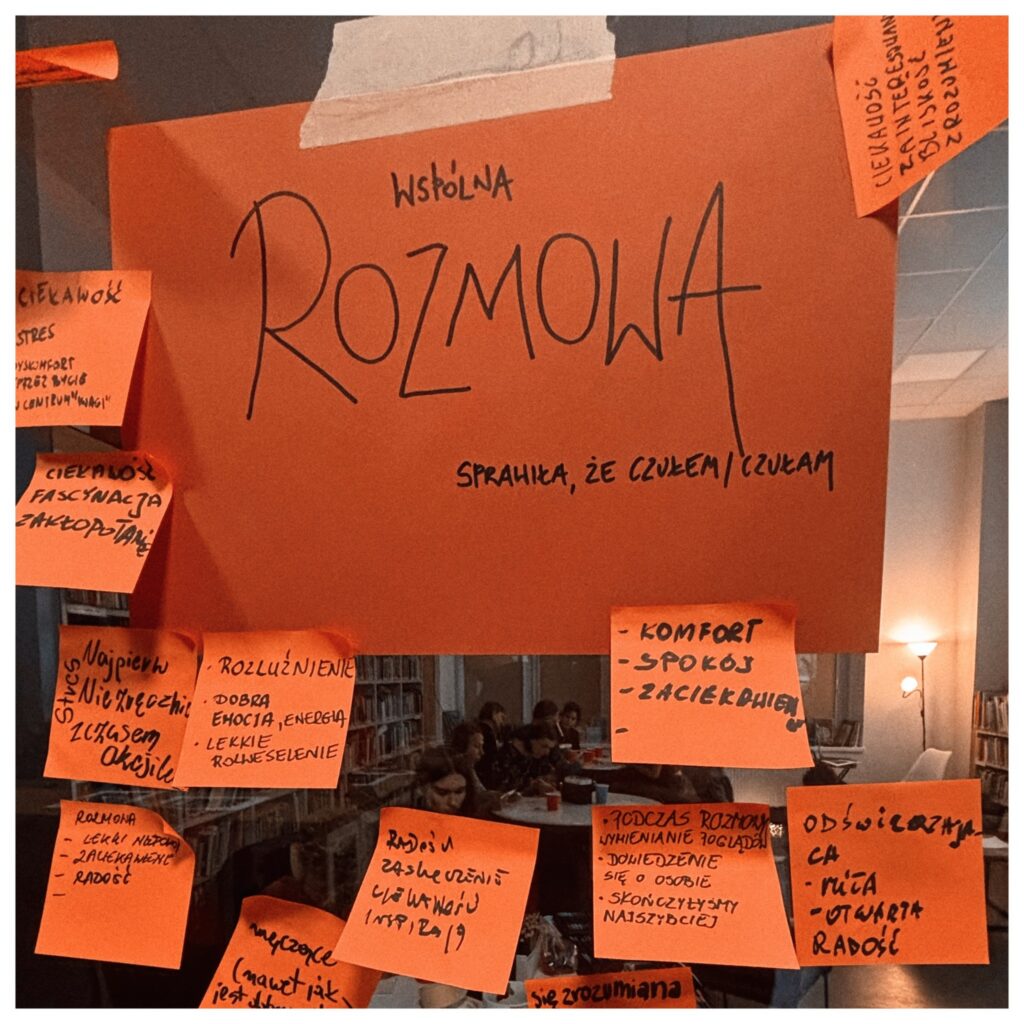 WSPÓLNA
ROZMOWA
SPRAWIŁA, ŻE CZUŁEM/CZUŁAM
CIEKAWOŚĆ
ZAINTERESOWAN
BLISKOŚĆ
ZROZUMIEN
CIEKAWOŚĆ
STRES
DYSKOMFORT
PRZEZ BYCIE
W CENTRUM "UWAGI"
CIEKAWOŚĆ
FASCYNACJA
ZAKŁOPOTANIE
Stres
Najpierw
Niezręcznie
z czasem
okejile
· ROZLUŹNIENIE
· DOBRA
EMOCJA, ENERGIA
· LEKKIE
ROZWESELENIE
- KOMFORT
- SPOKÓJ
- ZACIEKAWIENIE
-
ROZMOWA
- LEKKI NIEPOKÓJ
- ZACIEKAWENIE
- RADOŚĆ
-
RADOŚĆ
ZASKOCZENIE
CIEKAWOŚĆ
INSPIRACJA
· PODCZAS ROZMOWY
WYMIENIANIE POGLĄDÓW
· DOWIEDZENIE
SIĘ O OSOBIE
· SKOŃCZYŁYŚMY
NAJSZYBCIEJ
ODŚWIEŻAJĄ-
CA
- MIŁA
- OTWARTA
RADOŚĆ
męczące
(nawet jak
jest
się zrozumiana